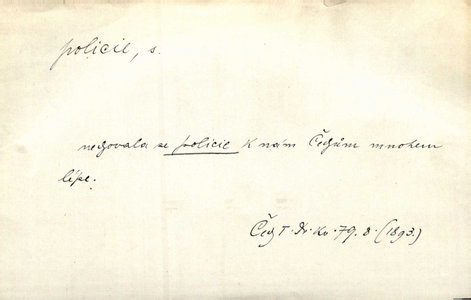 policie, s.
nechovala se policie k nám Čechům mnohem
lépe.
Čech T. Dr. Kv. 79. 8. (1893.)